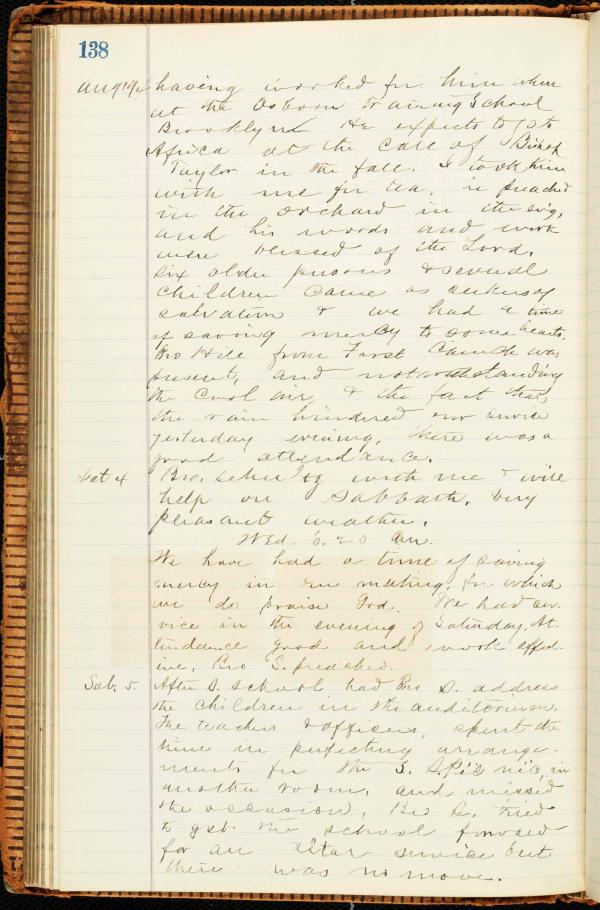 138
having worked for him when
at the Osborn Training School
Brooklyn He expects to go to
Africa at the call of Bishop
Taylor in the fall. I took him
with me for tea, he preached
in the orchard in the ev'g,
and his words and work
were blessed of the Lord.
Six older persons & several
children came as seekers of
salvation & we had a time
of saving mercy to some hearts.
Bro Hill from First Church was
present, and notwithstanding
the cool air, & the fact that
the rain hindered our service
yesterday evening, there was a
good attendance.
Sat 4 Bro. Schultz with me & will
help on Sabbath. Very
pleasant weather.
Wed. 6.20 Am.
We have had a time of saving
mercy in our meeting, for which
we do praise God. We had ser-
vice in the evening of Saturday. At-
tendance good and work effect-
ive, Bro S. preached.
Sab. 5. After S. School had Bro S. address
the children in the auditorium.
The teachers & officers, spent the
time in perfecting arrange-
ments for the S. S. Pic nic, in
another room, and missed
the occasion, Bro S. tried
to get the school forward
for an altar service but
there was no move.